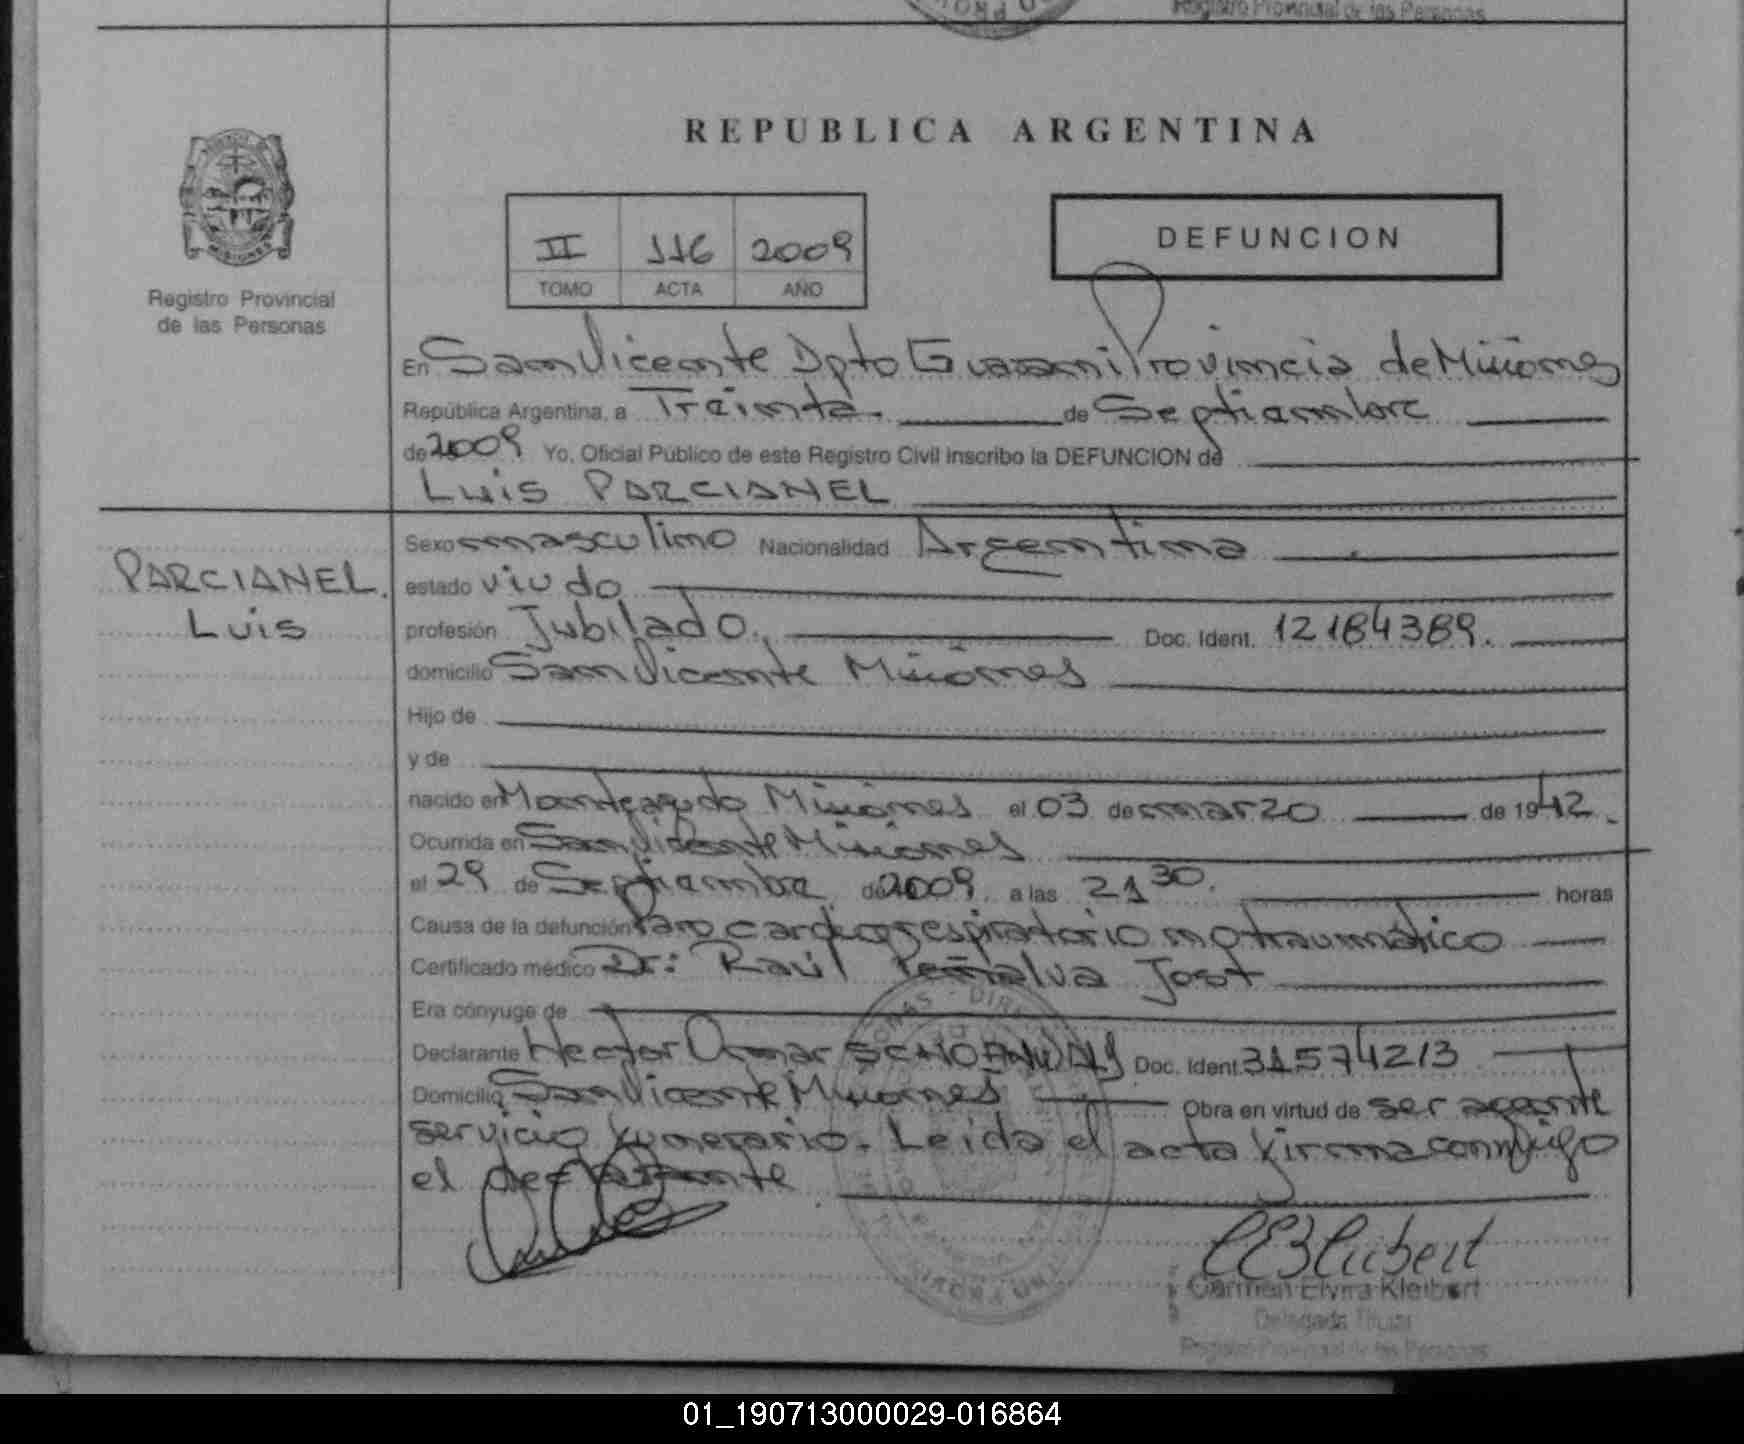 Registro Provincial de las Personas
REPUBLICA ARGENTINA
MISIONES
Registro Provincial
de las Personas
II 116 2009
TOMO ACTA AÑO
DEFUNCION
En San Vicente Dpto Guarani Provincia de Misiones
República Argentina, a Treinta. de Septiembre
de 2009 Yo, Oficial Público de este Registro Civil inscribo la DEFUNCION de
Luis PARCIANEL
PARCIANEL.
Luis
Sexo masculino Nacionalidad Argentina
estado viudo
profesión Jubilado. Doc. Ident. 12184389.
domicilio San Vicente Misiones
Hijo de
y de
nacido en Monteagudo Misiones el 03 de marzo de 1942.
Ocurrida en San Vicente Misiones
el 29 de Septiembre de 2009 a las 21 30. horas
Causa de la defunción Paro cardiorespiratorio no traumático
Certificado médico Dr: Raúl Peñalva Jost
Era cónyuge de
Declarante Hector Omar Doc. Ident. 31574213
Domicilio San Vicente Misiones Obra en virtud de ser agente
servicio funerario. Leida el acta firma conmigo
el declarante
CEKleibert
Carmen Elvira Kleibert
Delegada Titular
Registro Provincial de las Personas
01_190713000029-016864